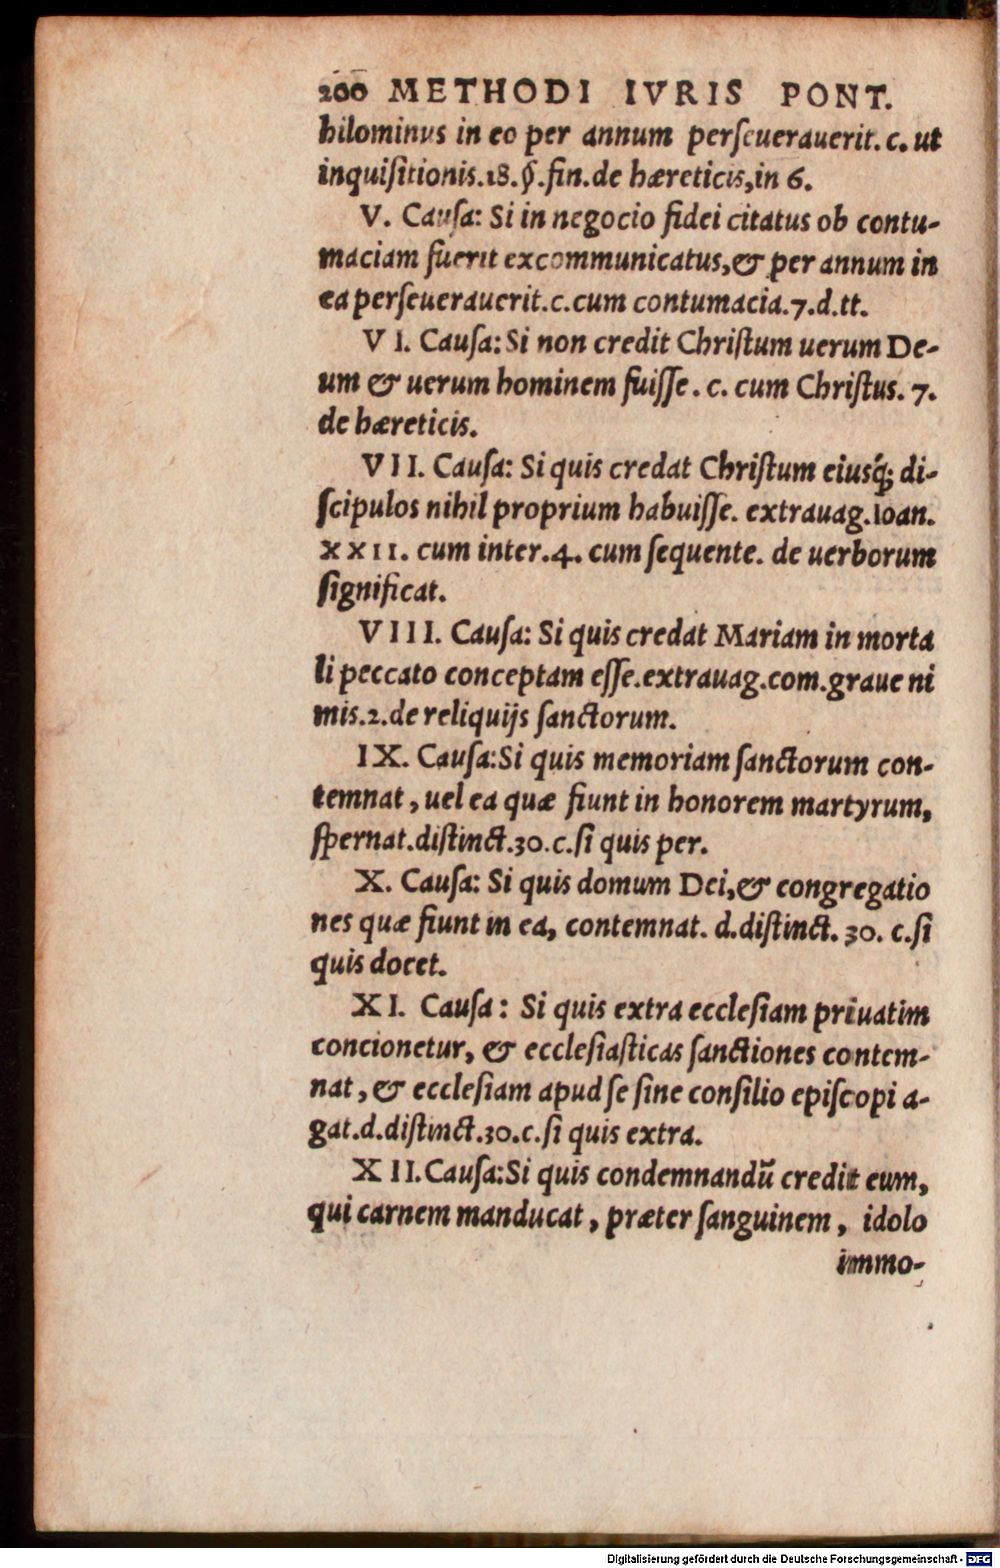 200 METHODI IVRIS PONT.
hilominus in eo per annum perſeuerauerit. c. ut
inquiſitionis.18.§.fin.de hæreticis,in 6.
V. Cauſa: Si in negocio fidei citatus ob contu-
maciam fuerit excommunicatus,& per annum in
ea perſeuerauerit.c.cum contumacia.7.d.tt.
VI. Cauſa: Si non credit Chriſtum uerum De-
um & uerum hominem fuiſſe. c. cum Chriſtus. 7.
de hæreticis.
VII. Cauſa: Si quis credat Chriſtum eiusq́; di-
ſcipulos nihil proprium habuiſſe. extrauag.Ioan.
XXII. cum inter.4. cum ſequente. de uerborum
ſignificat.
VIII. Cauſa: Si quis credat Mariam in morta
li peccato conceptam eſſe.extrauag.com.graue ni
mis.2.de reliquijs ſanctorum.
IX. Cauſa:Si quis memoriam ſanctorum con-
temnat, uel ea quæ fiunt in honorem martyrum,
ſpernat.diſtinct.30.c.ſi quis per.
X. Cauſa: Si quis domum Dei,& congregatio
nes quæ fiunt in ea, contemnat. d.diſtinct. 30. c.ſi
quis docet.
XI. Cauſa: Si quis extra eccleſiam priuatim
concionetur, & eccleſiaſticas ſanctiones contem-
nat, & eccleſiam apud ſe ſine conſilio epiſcopi a-
gat.d.diſtinct.30.c.ſi quis extra.
XII.Cauſa:Si quis condemnandū credit eum,
qui carnem manducat, præter ſanguinem, idolo
immo-
Digitalisierung gefördert durch die Deutsche Forschungsgemeinschaft - DFG